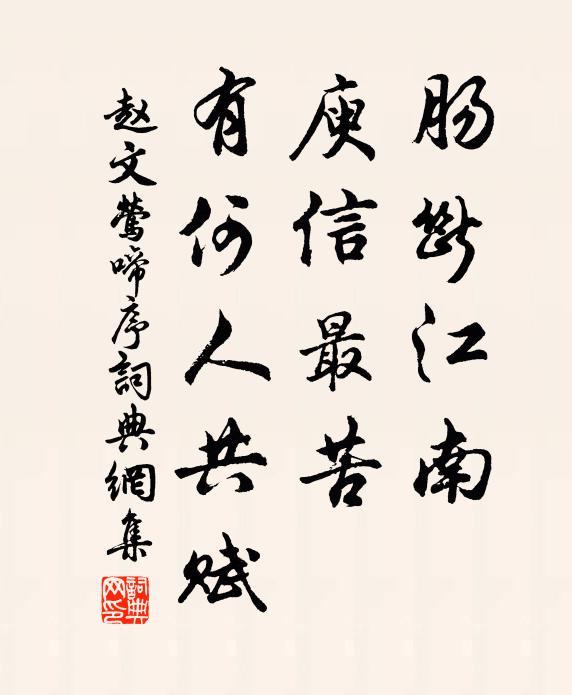 肠断江南
庾信最苦
有何人共赋
赵文莺啼序詞典網集
詞典
网印